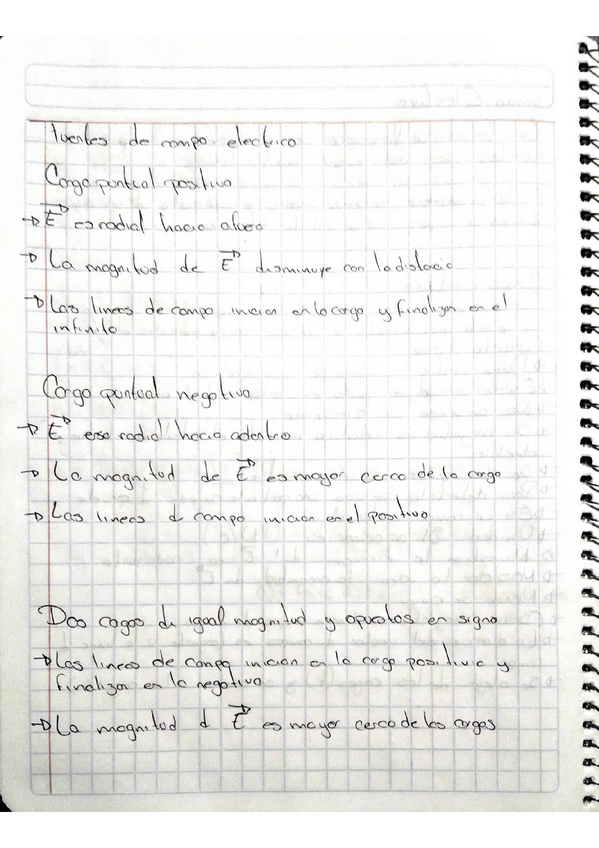 Fuentes de campo electrico
Carga puntual positiva
→ E es radial hacia afuera
→ La magnitud de E disminuye con la distacia
→ Las lineas de campo inician en la carga y finalizan en el
infinito
Carga puntual negativa
→ E radial hacia adentro
→ La magnitud de E es mayor cerca de la carga
→ Las lineas d campo inician en el positivo
Dos cargas de igual magnitud y opuestas en signo
→ Las lineas de campo inician en la carga positiva y
finalizan en la negativa
→ La magnitud d E es mayor cerca de las cargas